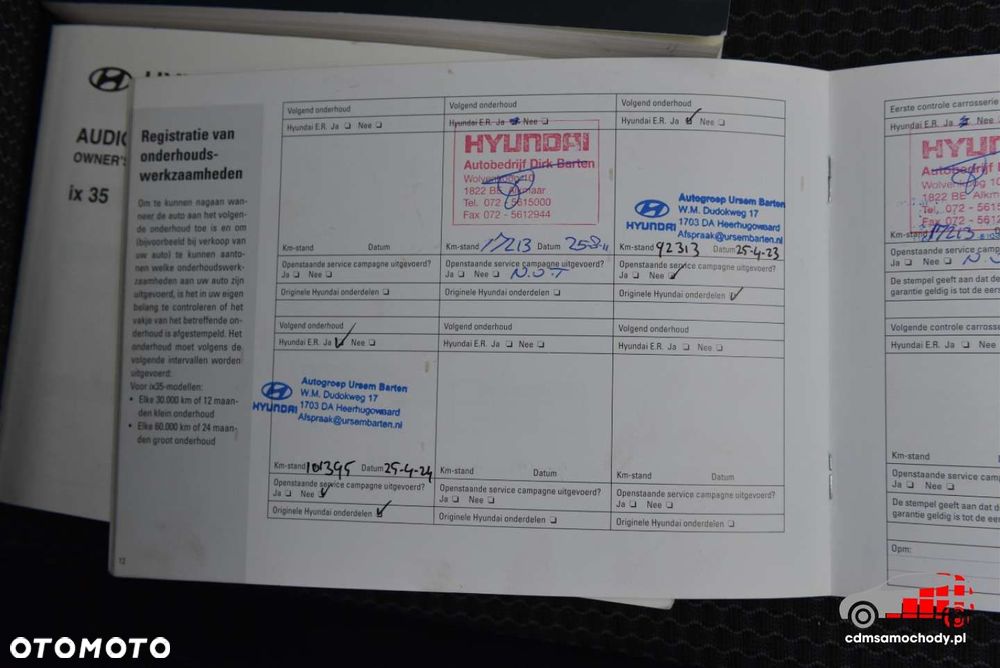 AUDIO
OWNER'S
ix 35
Registratie van
onderhouds-
werkzaamheden
Om te kunnen nagaan wan-
neer de auto aan het volgen-
de onderhoud toe is en om
(bijvoorbeeld bij verkoop van
uw auto) te kunnen aanto-
nen welke onderhoudswerk-
zaamheden aan uw auto zijn
uitgevoerd, is het in uw eigen
belang te controleren of het
vakje van het betreffende on-
derhoud is afgestempeld. Het
onderhoud moet volgens de
volgende intervallen worden
uitgevoerd:
Voor ix35-modellen:
• Elke 30.000 km of 12 maan-
den klein onderhoud
• Elke 60.000 km of 24 maan-
den groot onderhoud
12
Volgend onderhoud
Hyundai E.R. Ja ❑ Nee ❑
Km-stand Datum
Openstaande service campagne uitgevoerd?
Ja ❑ Nee ❑
Originele Hyundai onderdelen ❑
Volgend onderhoud
Hyundai E.R. Ja Nee ❑
HYUNDAI
Autobedrijf Dirk Barten
1822 BE Alkmaar
Tel. 072 - 5615000
Fax 072 - 5612944
Km-stand 17213 Datum
Openstaande service campagne uitgevoerd?
Ja ❑ Nee ❑
Originele Hyundai onderdelen ❑
Volgend onderhoud
Hyundai E.R. Ja ❑ Nee ❑
HYUNDAI
Autogroep Ursem Barten
W.M. Dudokweg 17
1703 DA Heerhugowaard
Afspraak@ursembarten.nl
Km-stand 92313 Datum 25-4-23
Openstaande service campagne uitgevoerd?
Ja ❑ Nee ❑
Originele Hyundai onderdelen ❑
Volgend onderhoud
Hyundai E.R. Ja ❑ Nee ❑
HYUNDAI
Autogroep Ursem Barten
W.M. Dudokweg 17
1703 DA Heerhugowaard
Afspraak@ursembarten.nl
Km-stand 101395 Datum 25-4-24
Openstaande service campagne uitgevoerd?
Ja ❑ Nee ❑
Originele Hyundai onderdelen ❑
Volgend onderhoud
Hyundai E.R. Ja ❑ Nee ❑
Km-stand Datum
Openstaande service campagne uitgevoerd?
Ja ❑ Nee ❑
Originele Hyundai onderdelen ❑
Volgend onderhoud
Hyundai E.R. Ja ❑ Nee ❑
Km-stand Datum
Openstaande service campagne uitgevoerd?
Ja ❑ Nee ❑
Originele Hyundai onderdelen ❑
Eerste controle carrosserie
Hyundai E.R. Ja Nee ❑
Autobedrijf
1822 BE
Tel. 072 - 
Fax 072 - 
Km-stand 17213
Openstaande service
Ja ❑ Nee ❑
De stempel geeft aan dat de
garantie geldig is tot de eers
Volgende controle carrosse
Hyundai E.R. Ja ❑ Nee
Km-stand
Openstaande service
Ja ❑ Nee ❑
De stempel geeft aan dat
garantie geldig is tot de eers
Opm:
OTOMOTO
cdmsamochody.pl